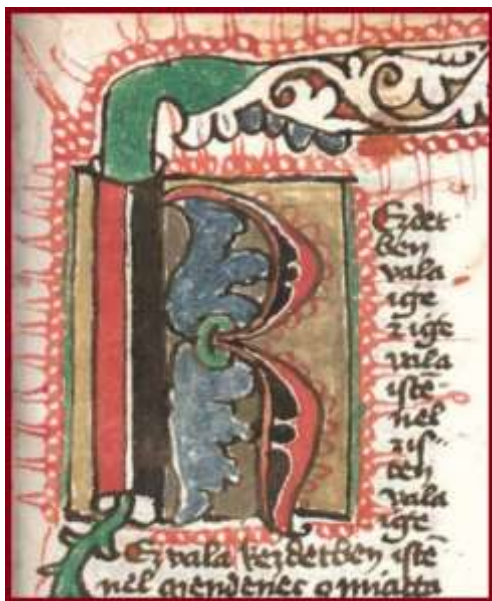 K
Ezdet
ben
vala
ige
z̄ ige
vala
istē
nel
z is
ten
vala
ige
Ez vala kezdetben istē
nel mendenec o miatta